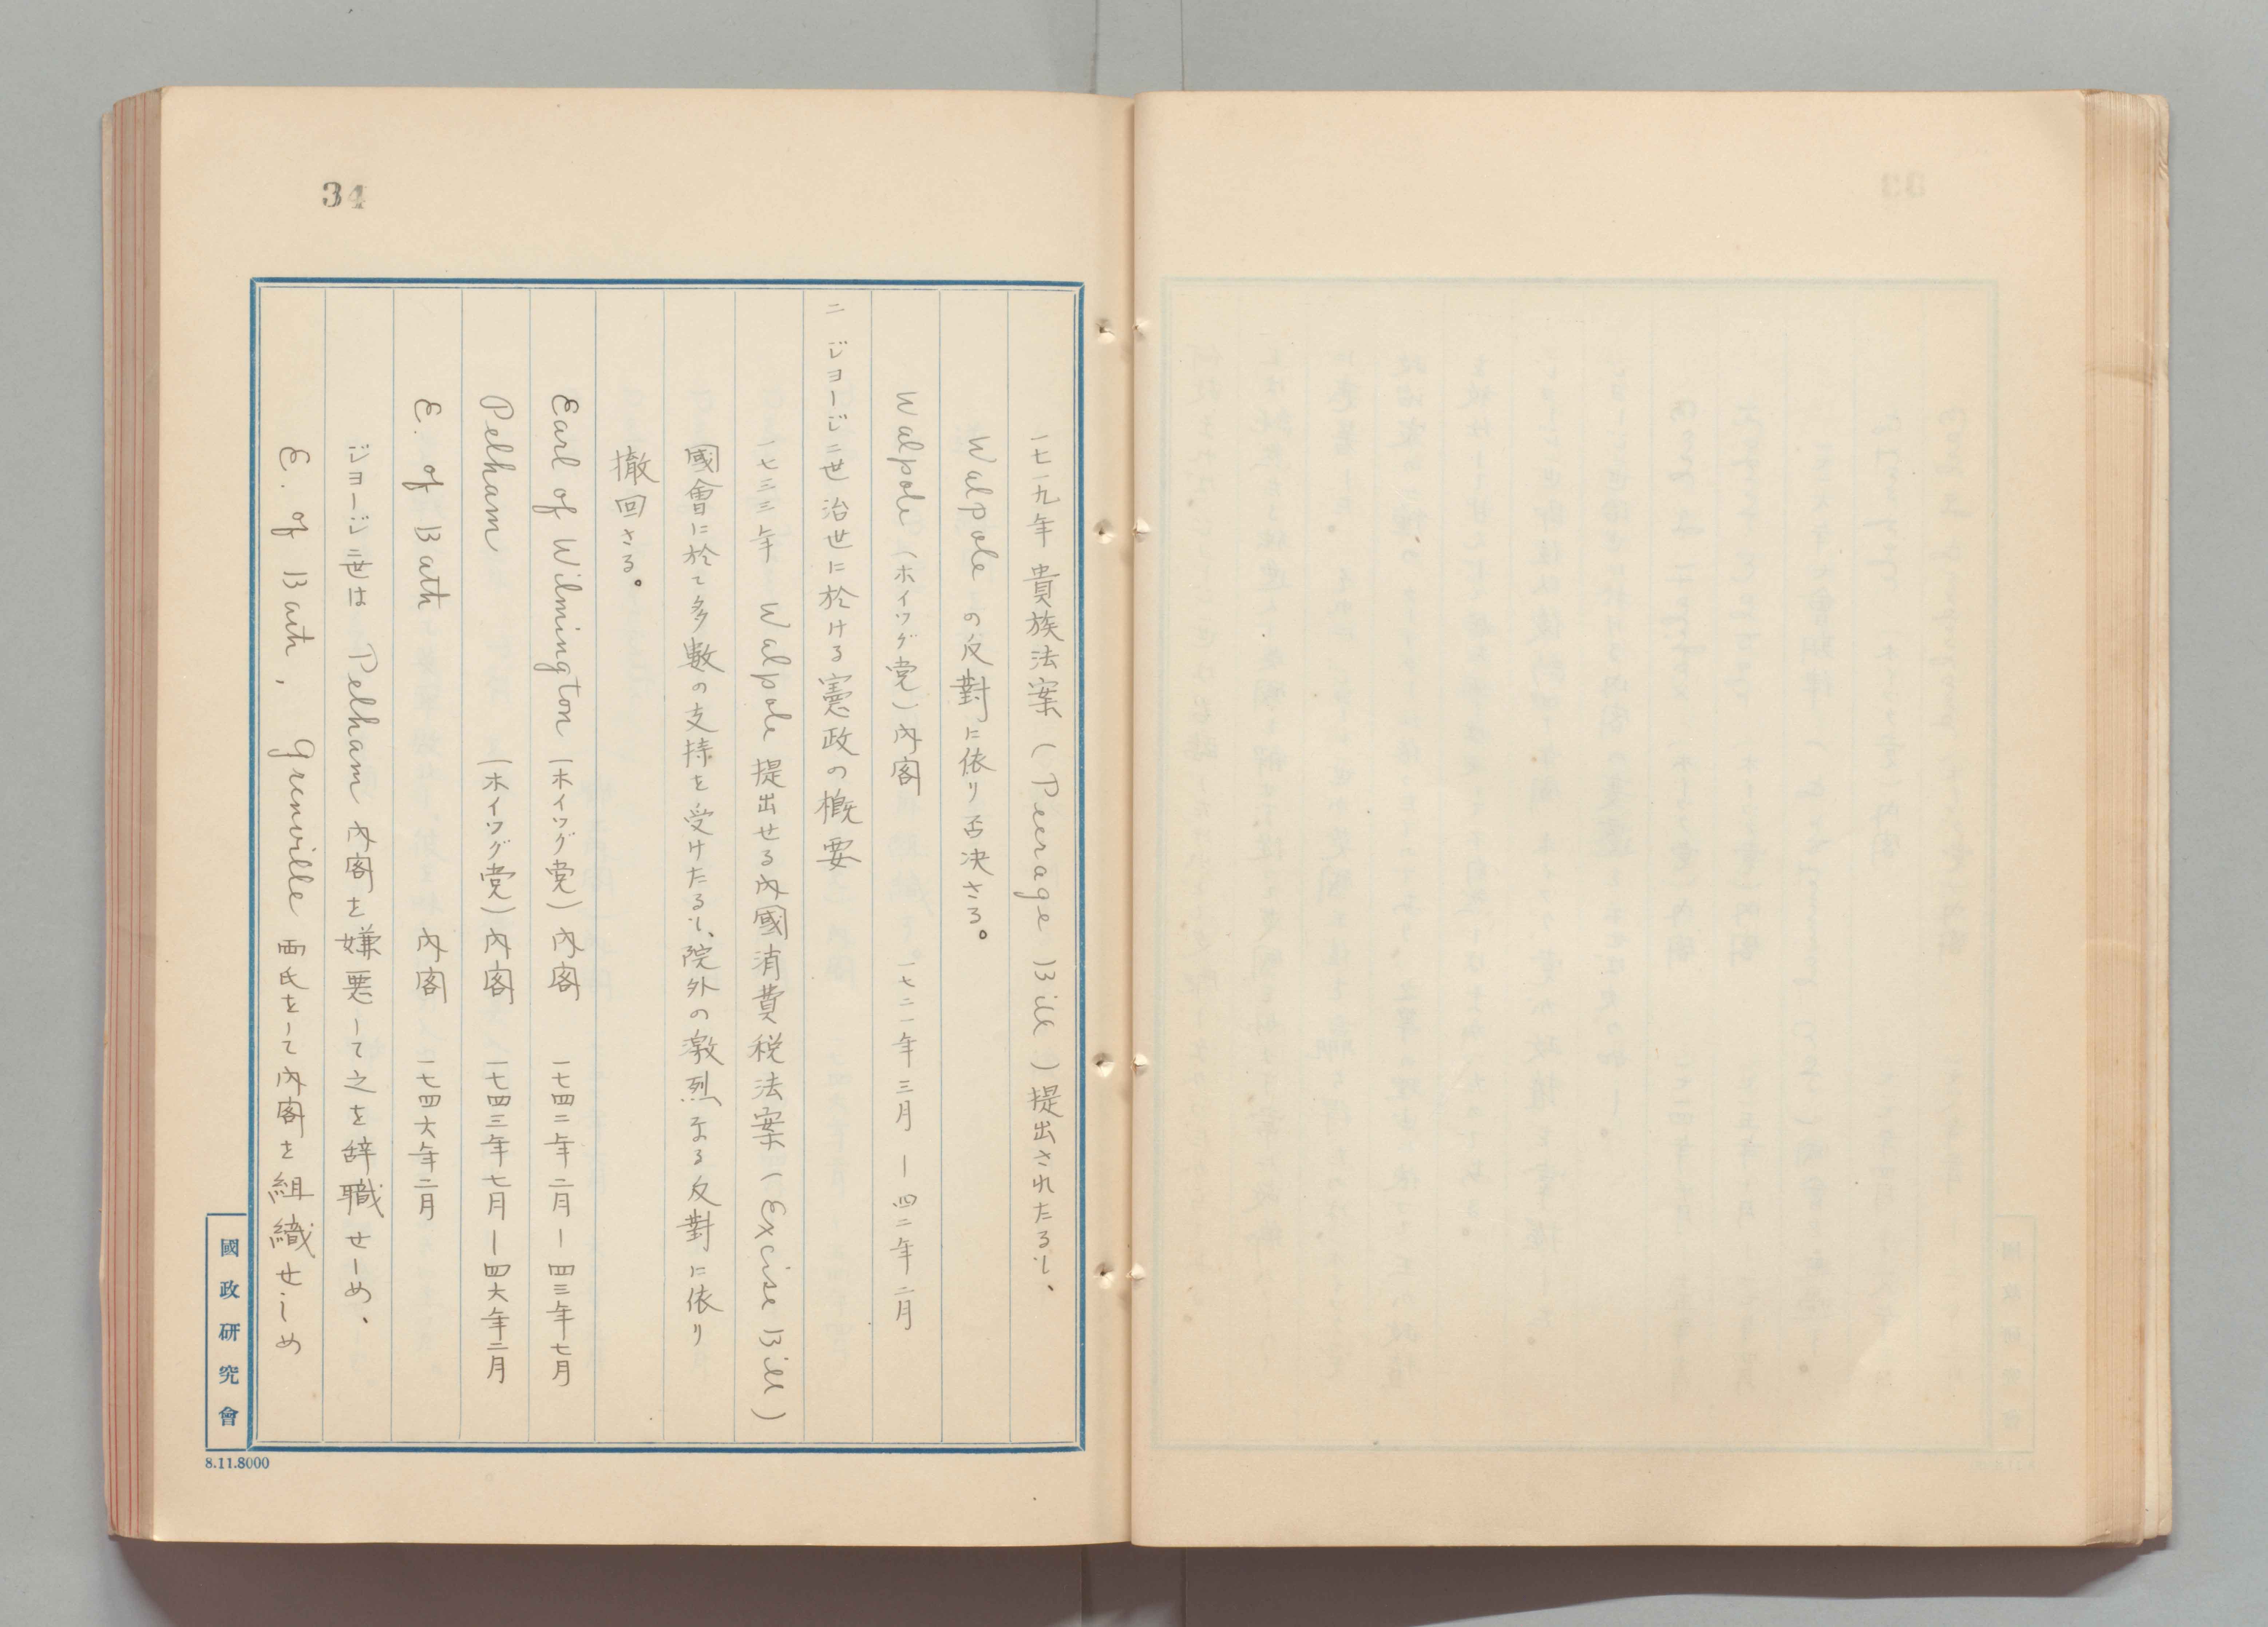 34
一七一九年 貴族法案（Peerage Bill）提出されたるも、
Walpole の反對に依り否決さる。
Walpole（ホイッグ党）內閣 一七二一年三月―四二年二月
二 ジョージ二世治世に於ける憲政の概要
一七三三年 Walpole 提出せる內國消費税法案（Excise Bill）
國會に於て多數の支持を受けたるも、院外の激烈なる反對に依り
撤回さる。
Earl of Wilmington（ホイッグ党）內閣 一七四二年二月―四三年七月
Pelham（ホイッグ党）內閣 一七四三年七月―四六年二月
E. of Bath 內閣 一七四六年二月
ジョージ二世は Pelham 內閣を嫌悪して之を辞職せしめ、
E. of Bath, Grenville 両氏をして內閣を組織せしめ
國政研究會
8.11.8000